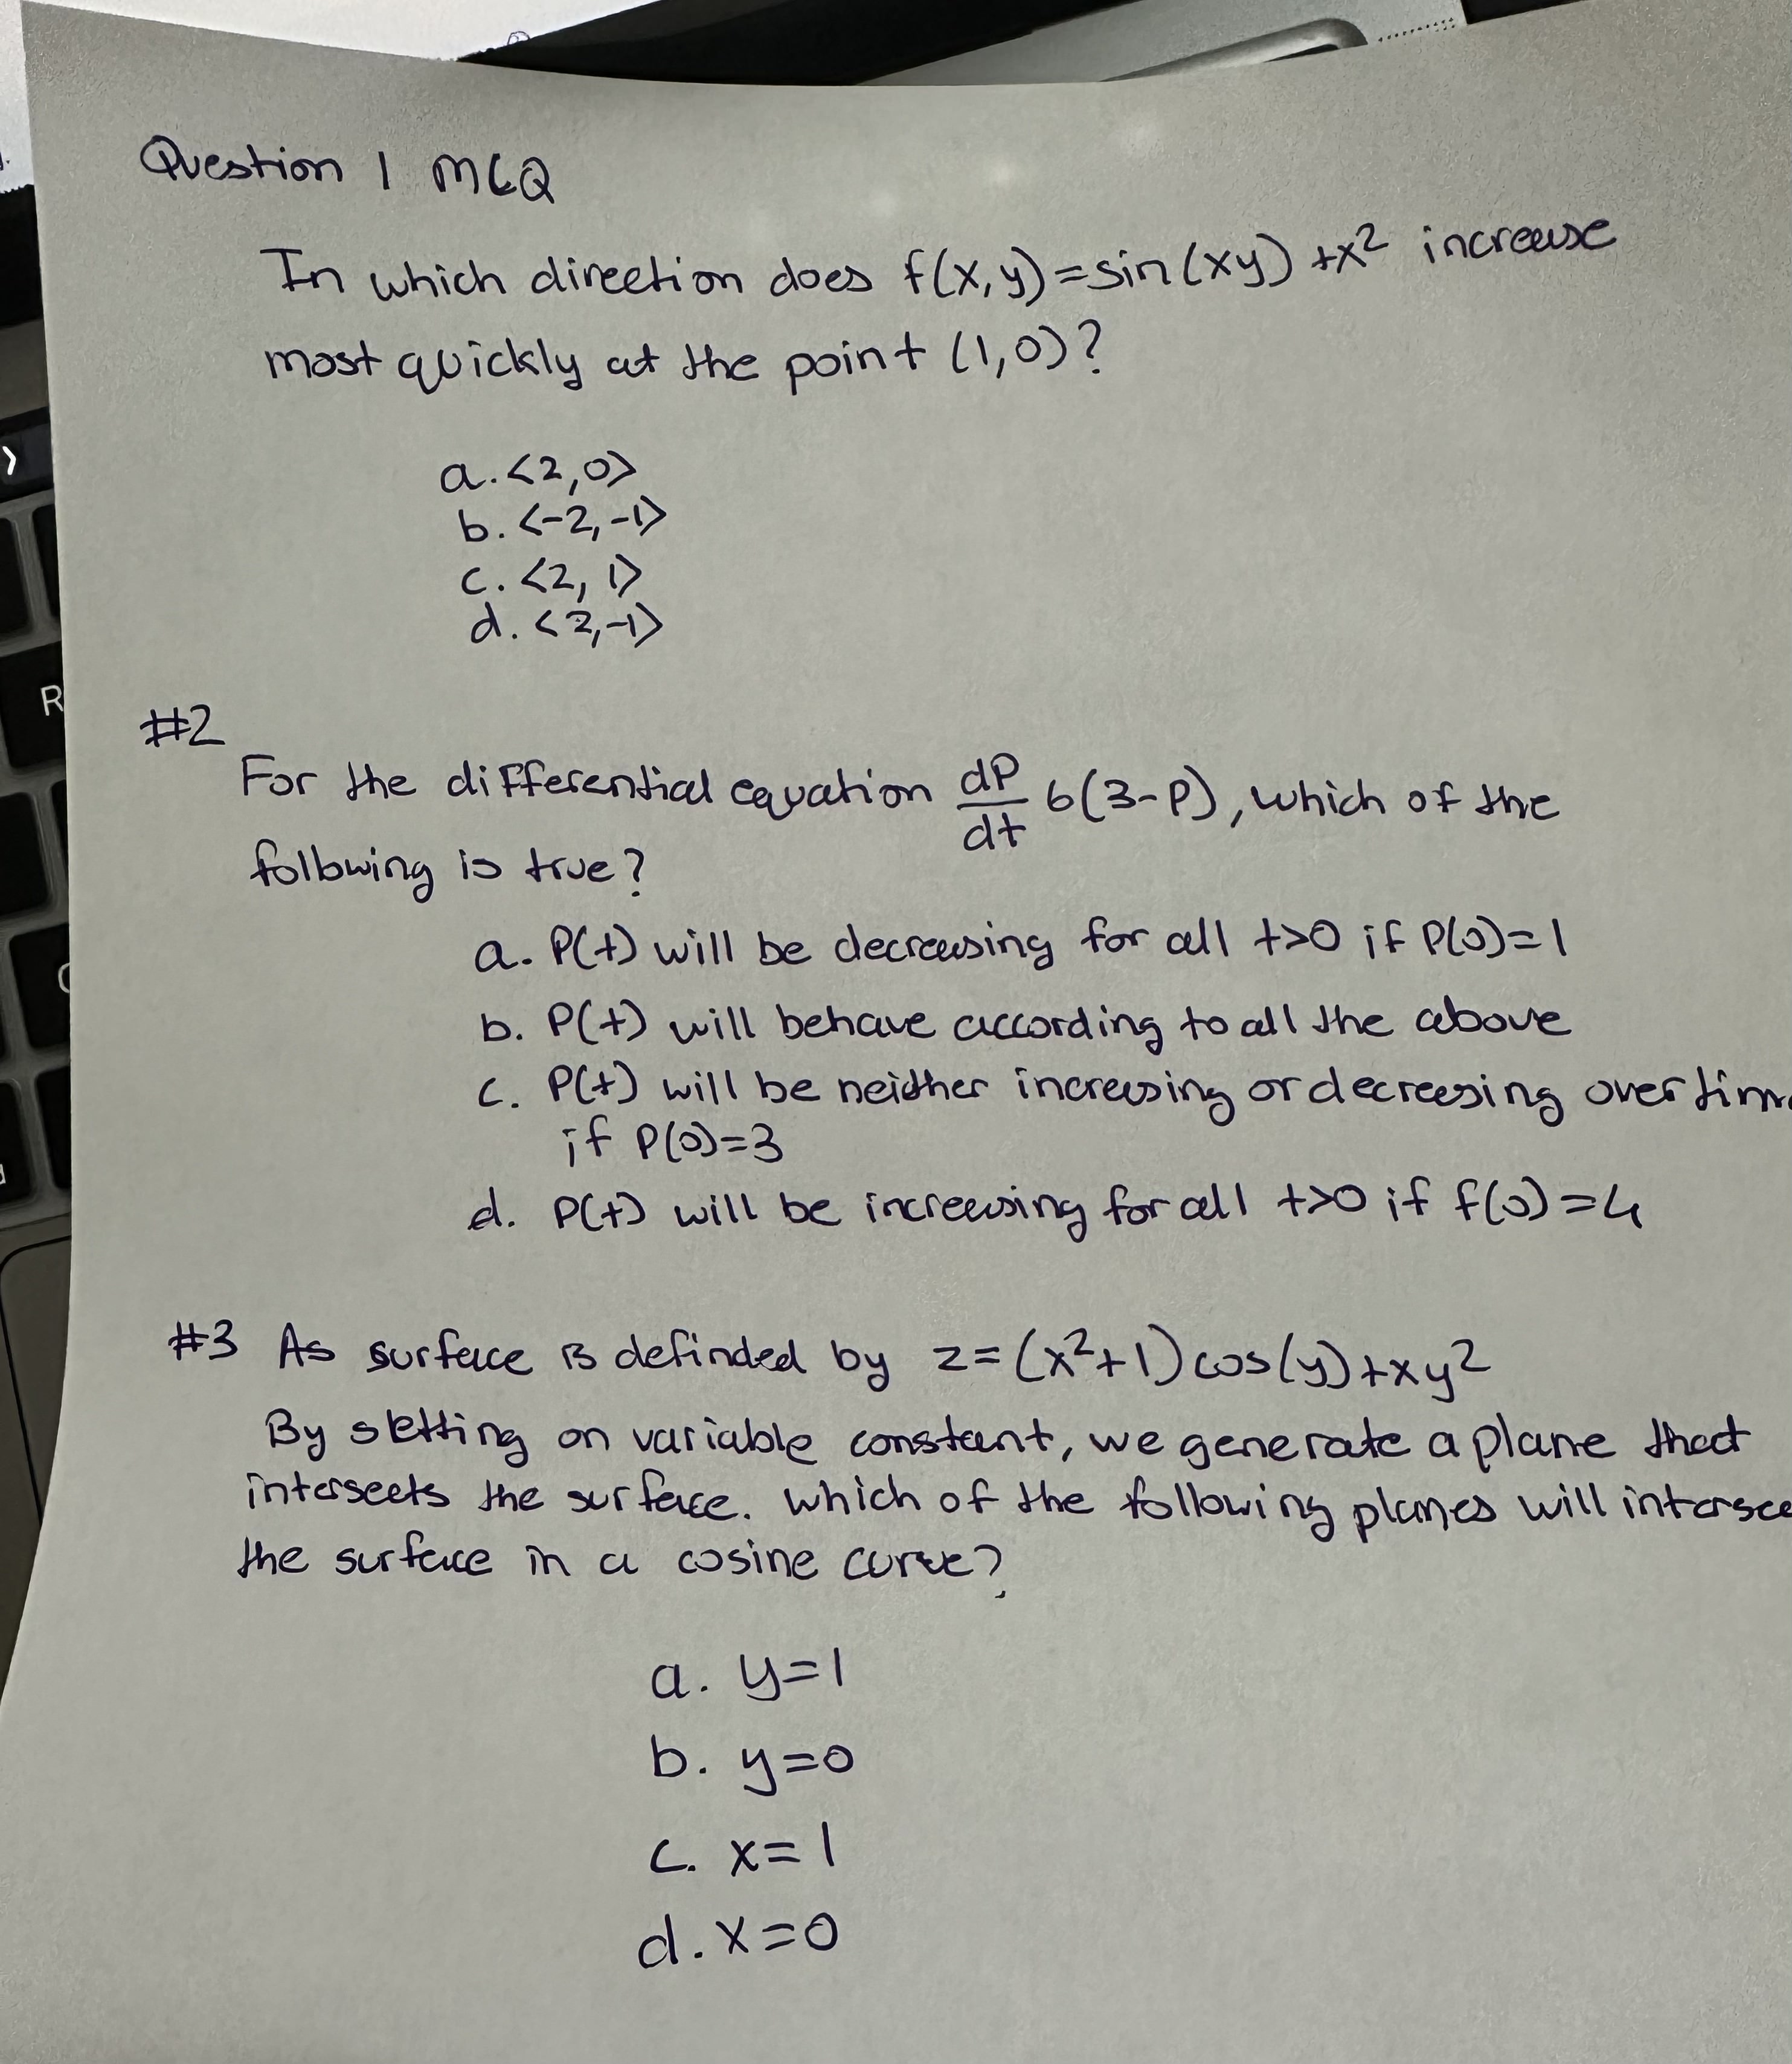 Question 1 MCQ
In which direction does f(x,y)=sin(xy)+x² increase
most quickly at the point (1,0)?
a. <2,0>
b. <-2,-1>
c. <2, 1>
d. <2,-1>
#2
For the differential equation dP/dt 6(3-P), which of the
following is true?
a. P(t) will be decreasing for all t>0 if P(0)=1
b. P(t) will behave according to all the above
c. P(t) will be neither increasing or decreesing over tim
if P(0)=3
d. P(t) will be increasing for all t>0 if f(0)=4
#3 As surface is definded by z=(x²+1)cos(y)+xy²
By setting on variable constant, we generate a plane that
intersects the surface. which of the following planes will intersec
the surface in a cosine curve?
a. y=1
b. y=0
c. x=1
d. x=0
R